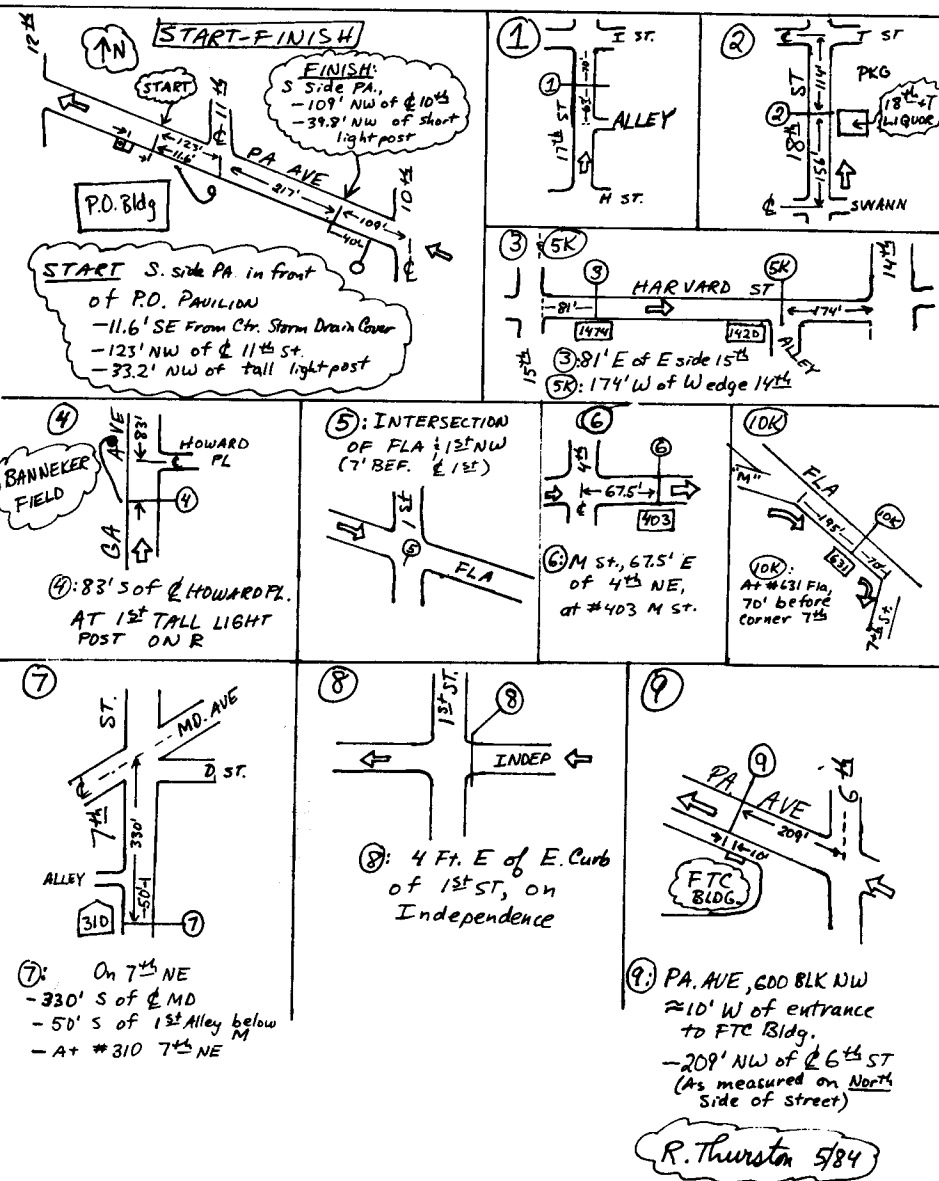 START-FINISH
12th
↑N
START
FINISH:
S Side PA.,
-109' NW of ℄ 10th
-39.8' NW of short
light post
11th
℄
123'
11.6'
PA AVE
217'
109'
10th
℄
P.O. Bldg
START S. side PA. in front
of P.O. PAVILION
-11.6' SE From Ctr. Storm Drain Cover
-123' NW of ℄ 11th St.
-33.2' NW of tall light post
1
I ST.
70'
1
63'
17th ST
ALLEY
M ST.
2
℄
T ST
PKG
114'
18th + T
LIQUOR
2
18th ST
156'
℄
SWANN
3
5K
3
5K
14th
HARVARD ST
81'
174'
1474
1420
15th
ALLEY
3: 81' E of E side 15th
5K: 174' W of W edge 14th
4
AVE
83'
HOWARD
PL
℄
BANNEKER
FIELD
4
GA
4: 83' S of ℄ HOWARD PL.
AT 1st TALL LIGHT
POST ON R
5: INTERSECTION
OF FLA & 1st NW
(7' BEF. ℄ 1st)
1st
5
FLA
6
4th
6
67.5'
℄
403
6: M St., 67.5' E
of 4th NE,
at #403 M St.
10K
"M"
FLA
10K
195'
70'
631
10K:
At #631 Fla,
70' before
corner 7th
7th St.
7
ST.
MD. AVE
D ST.
℄
7th
330'
ALLEY
50'
310
7
7: On 7th NE
-330' S of ℄ MD
-50' S of 1st Alley below
M
-At #310 7th NE
8
1st ST.
8
INDEP
8: 4 Ft. E of E. Curb
of 1st ST, on
Independence
9
9
6th
PA. AVE
209'
10'
FTC
BLDG.
9: PA. AVE, 600 BLK NW
≈10' W of entrance
to FTC Bldg.
-209' NW of ℄ 6th ST
(As measured on North
Side of street)
R. Thurston 5/84